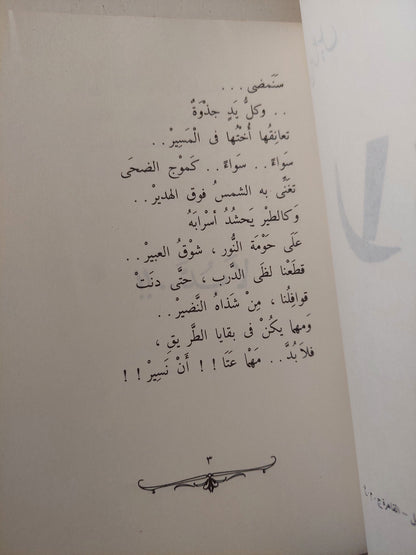 سَنَمضى . . .
. . وكلُّ يَدٍ جذْوَةٌ
تعانِقُها أُختُها فى الْمَسِيرْ . .
سَواءً . . سَواءً . . كَموْجِ الضحَى
تغَنَّى به الشمسُ فوق الهديرْ . .
وَكالطيْرِ يَحشُدُ أسْرَابَهُ
عَلَى حَوْمَةِ النُّورِ ، شوْقُ العبيرْ . .
قطَعْنا لظَى الدَّربِ ، حتَّى دنَتْ
قوافِلُنا ، مِنْ شذَاهُ النَّضيرْ . .
وَمهما يكُنْ فى بقايا الطَّريقِ ،
فلاَ بُدَّ . . مَهْما عَتَا ! ! أَنْ نَسِيرْ ! !
٣